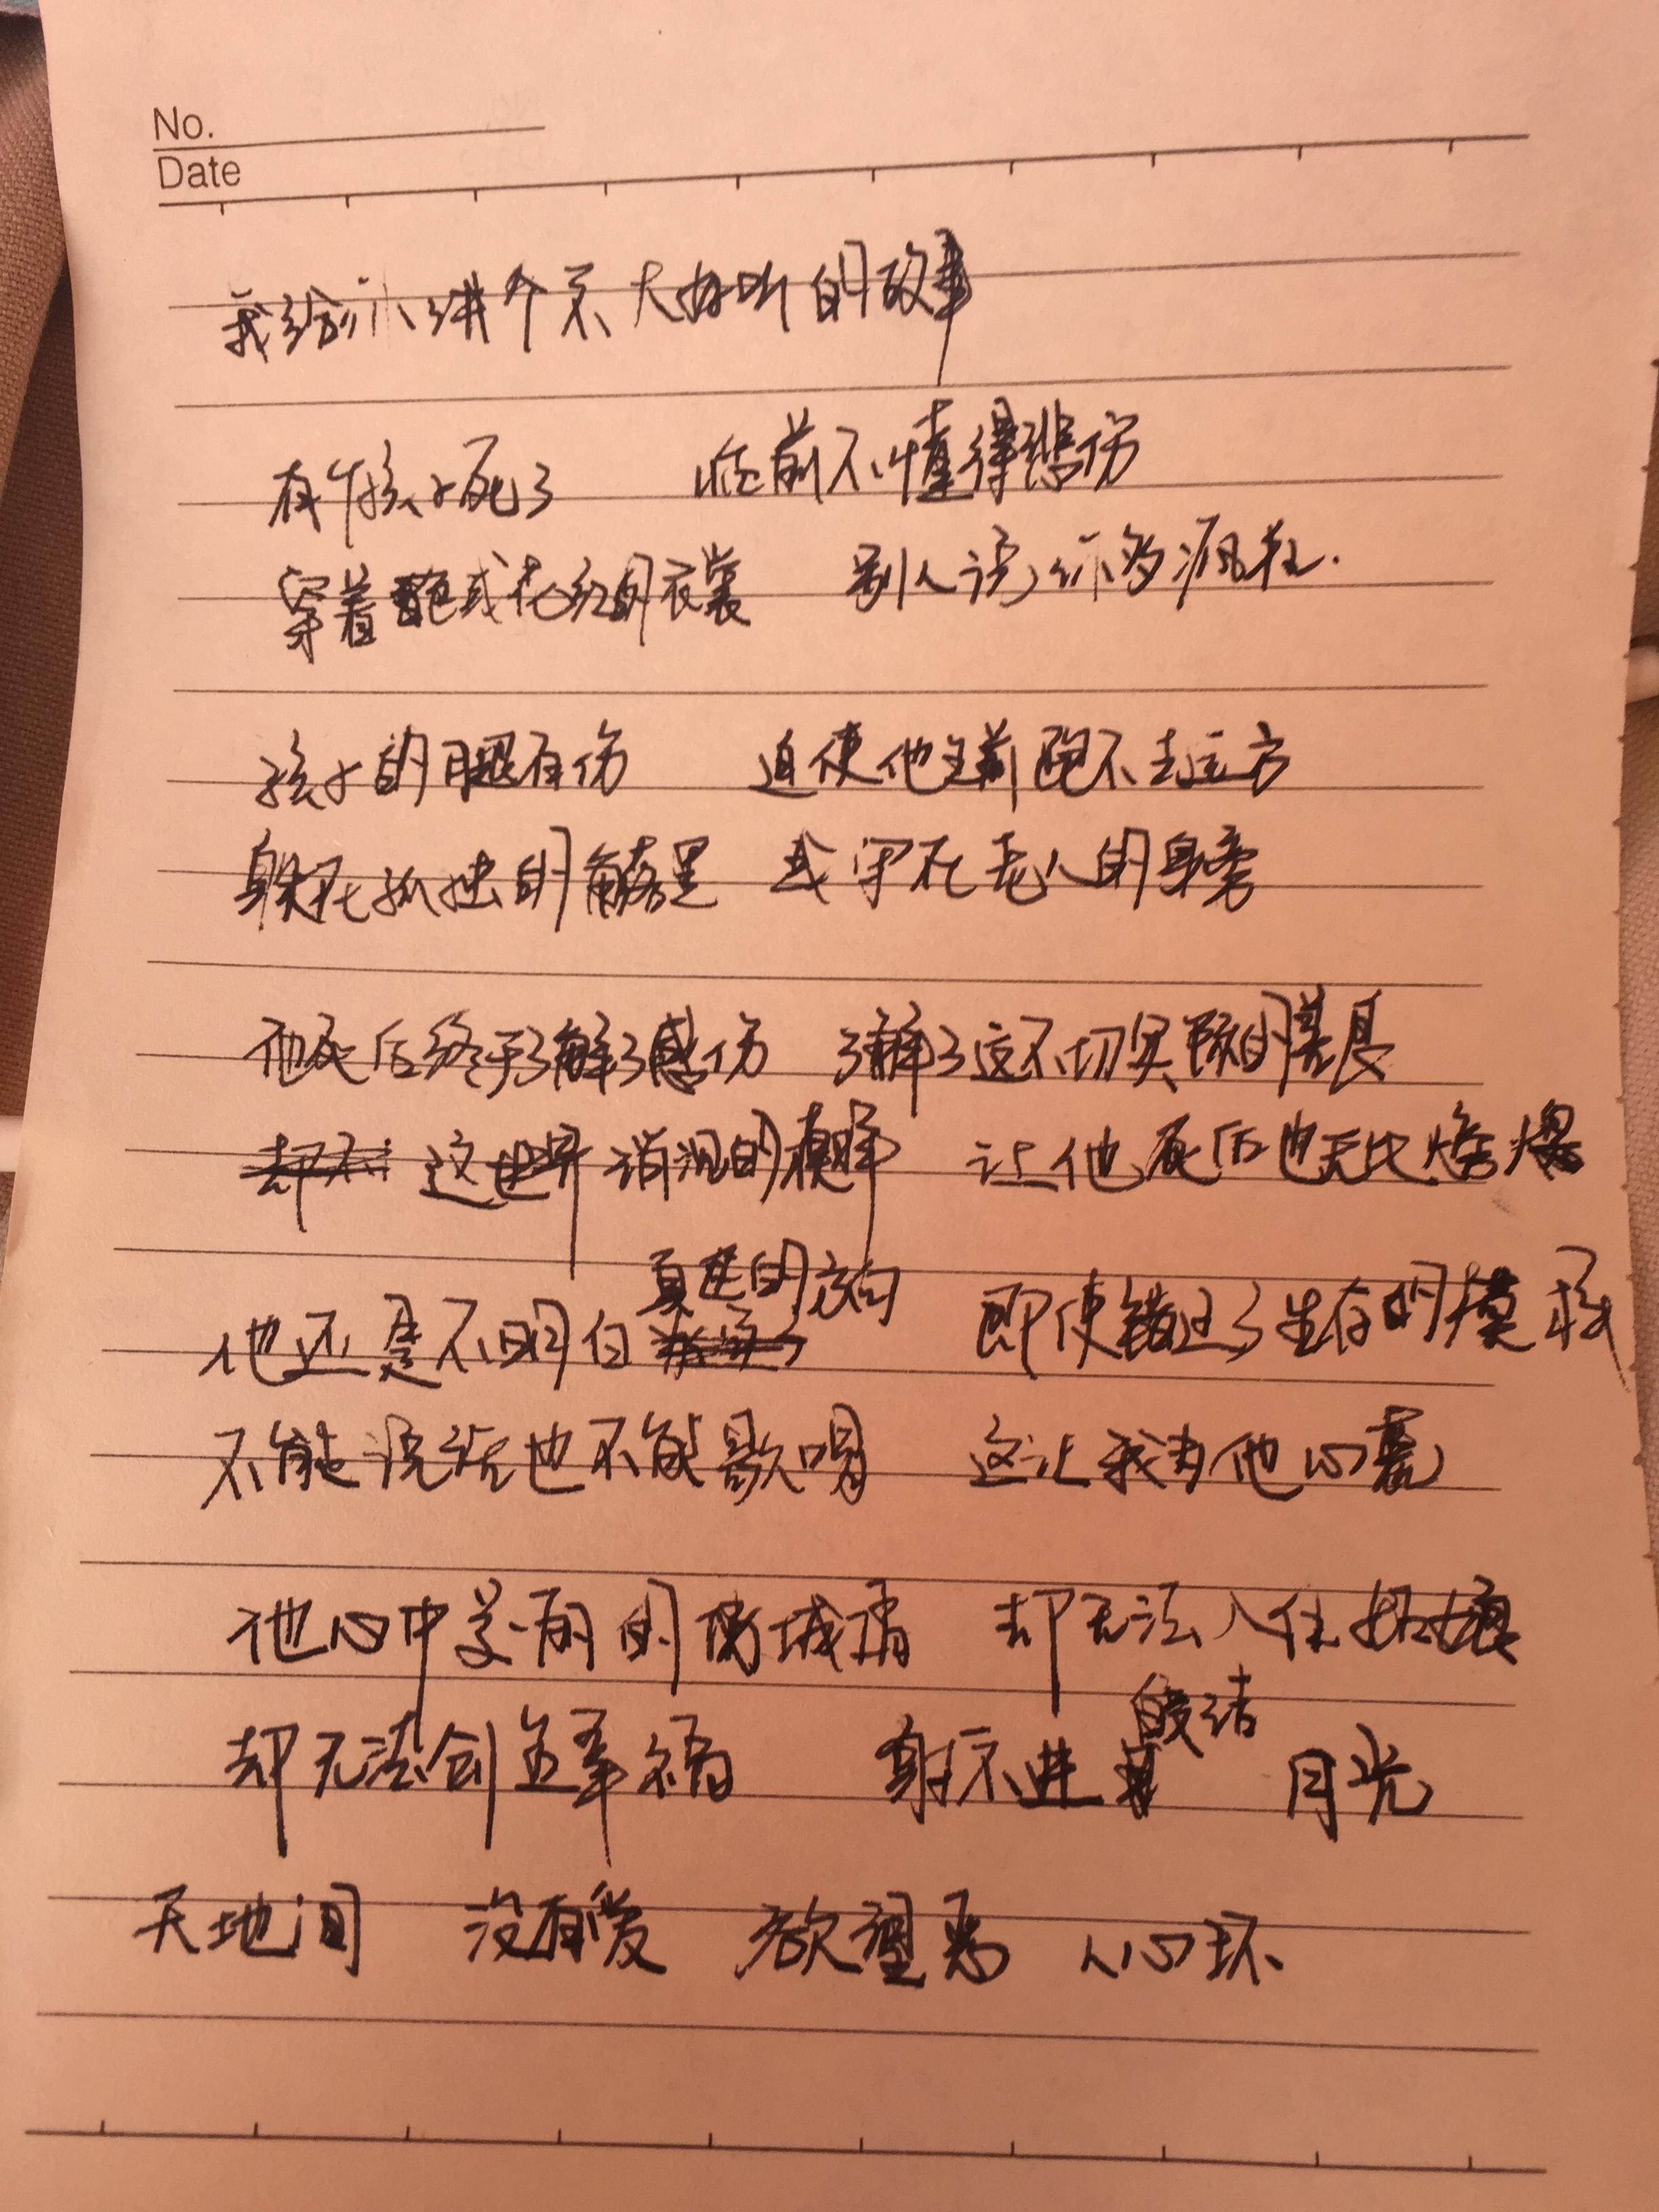 No.
Date
我给你讲个不大好听的故事
有个孩子死了 临前不懂得悲伤
穿着 或花红的衣裳 别人说你多疯狂.
孩子的腿有伤 迫使他生前跑不去远方
躲在孤独的角落里 或守在老人的身旁
他死后终于了解了感伤 了解了这不切实际的漫长
这世界 的模样 让他死后也无比
真正的方向
他还是不明白 即使错过了生存的模样
不能说话也不能歌唱 这让我为他心慌
他心中美丽的 城 却无法入住姑娘
皎洁
却无法创造幸福 射不进 月光
天地间 没有爱 欲望恶 人心坏